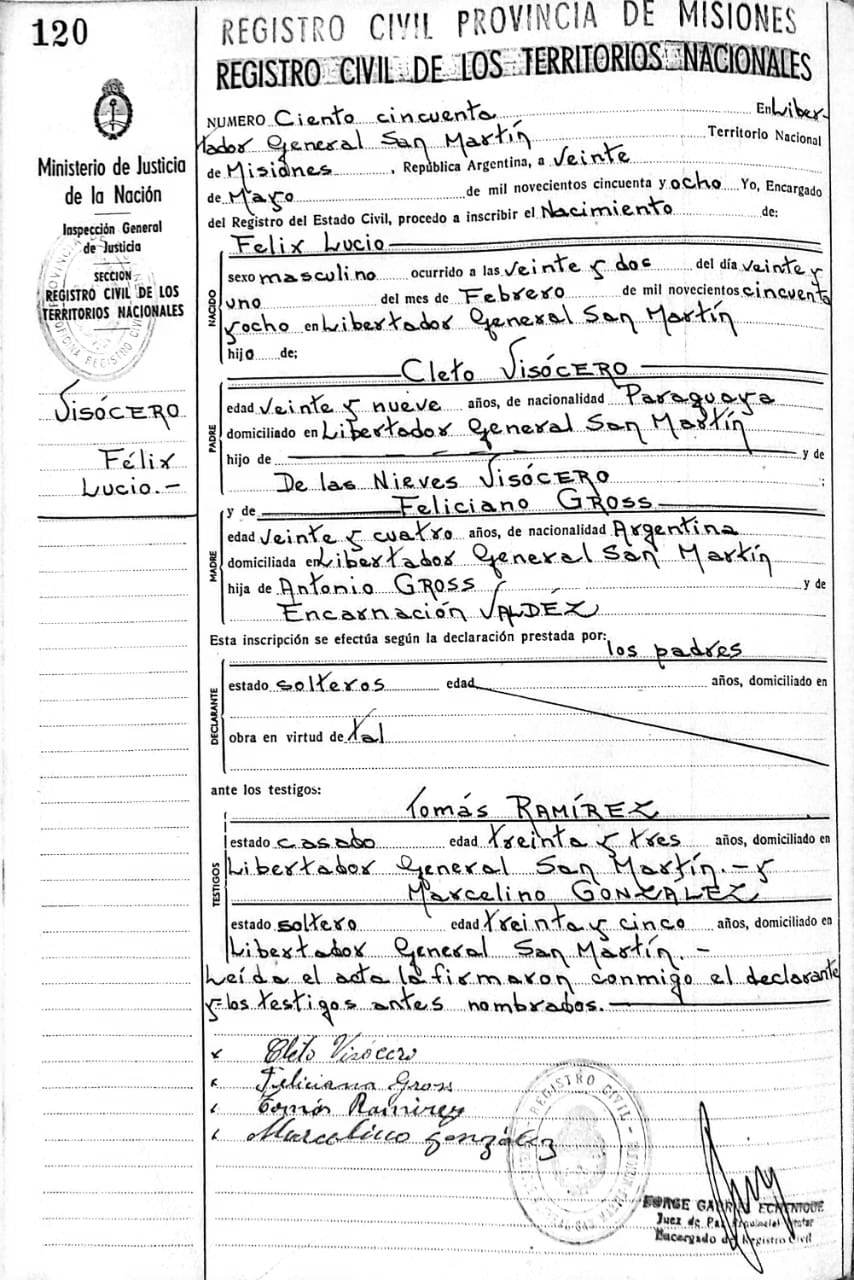 120
REGISTRO CIVIL PROVINCIA DE MISIONES
REGISTRO CIVIL DE LOS TERRITORIOS NACIONALES
Ministerio de Justicia
de la Nación
Inspección General
de Justicia
SECCION
REGISTRO CIVIL DE LOS
TERRITORIOS NACIONALES
VISÓCERO
Félix
Lucio.-
NUMERO Ciento cincuenta En Liber-
tador General San Martín Territorio Nacional
de Misiones, República Argentina, a veinte
de Mayo de mil novecientos cincuenta y ocho Yo, Encargado
del Registro del Estado Civil, procedo a inscribir el Nacimiento de:
NACIDO
Felix Lucio
sexo masculino ocurrido a las veinte y dos del día veinte y
uno del mes de Febrero de mil novecientos cincuenta
y ocho en Libertador General San Martín
hijo de;
PADRE
Cleto VISÓCERO
edad veinte y nueve años, de nacionalidad Paraguaya
domiciliado en Libertador General San Martín
hijo de y de
De las Nieves VISÓCERO ;
MADRE
y de Feliciano GROSS
edad veinte y cuatro años, de nacionalidad Argentina
domiciliada en Libertador General San Martín
hija de Antonio GROSS y de
Encarnación VALDÉZ
Esta inscripción se efectúa según la declaración prestada por: los padres
DECLARANTE
estado solteros edad años, domiciliado en
obra en virtud de tal
ante los testigos:
TESTIGOS
Tomás RAMÍREZ
estado casado edad treinta y tres años, domiciliado en
Libertador General San Martín.- y
Marcelino GONZALEZ
estado soltero edad treinta y cinco años, domiciliado en
Libertador General San Martín.-
Leída el acta la firmaron conmigo el declarante
y los testigos antes nombrados.-
x Cleto Visócero
Feliciana Gross
Tomás Ramirez
Marcelino gonzález
REGISTRO CIVIL
JORGE GABRIEL ECHENIQUE
Juez de Paz
Encargado de Registro Civil